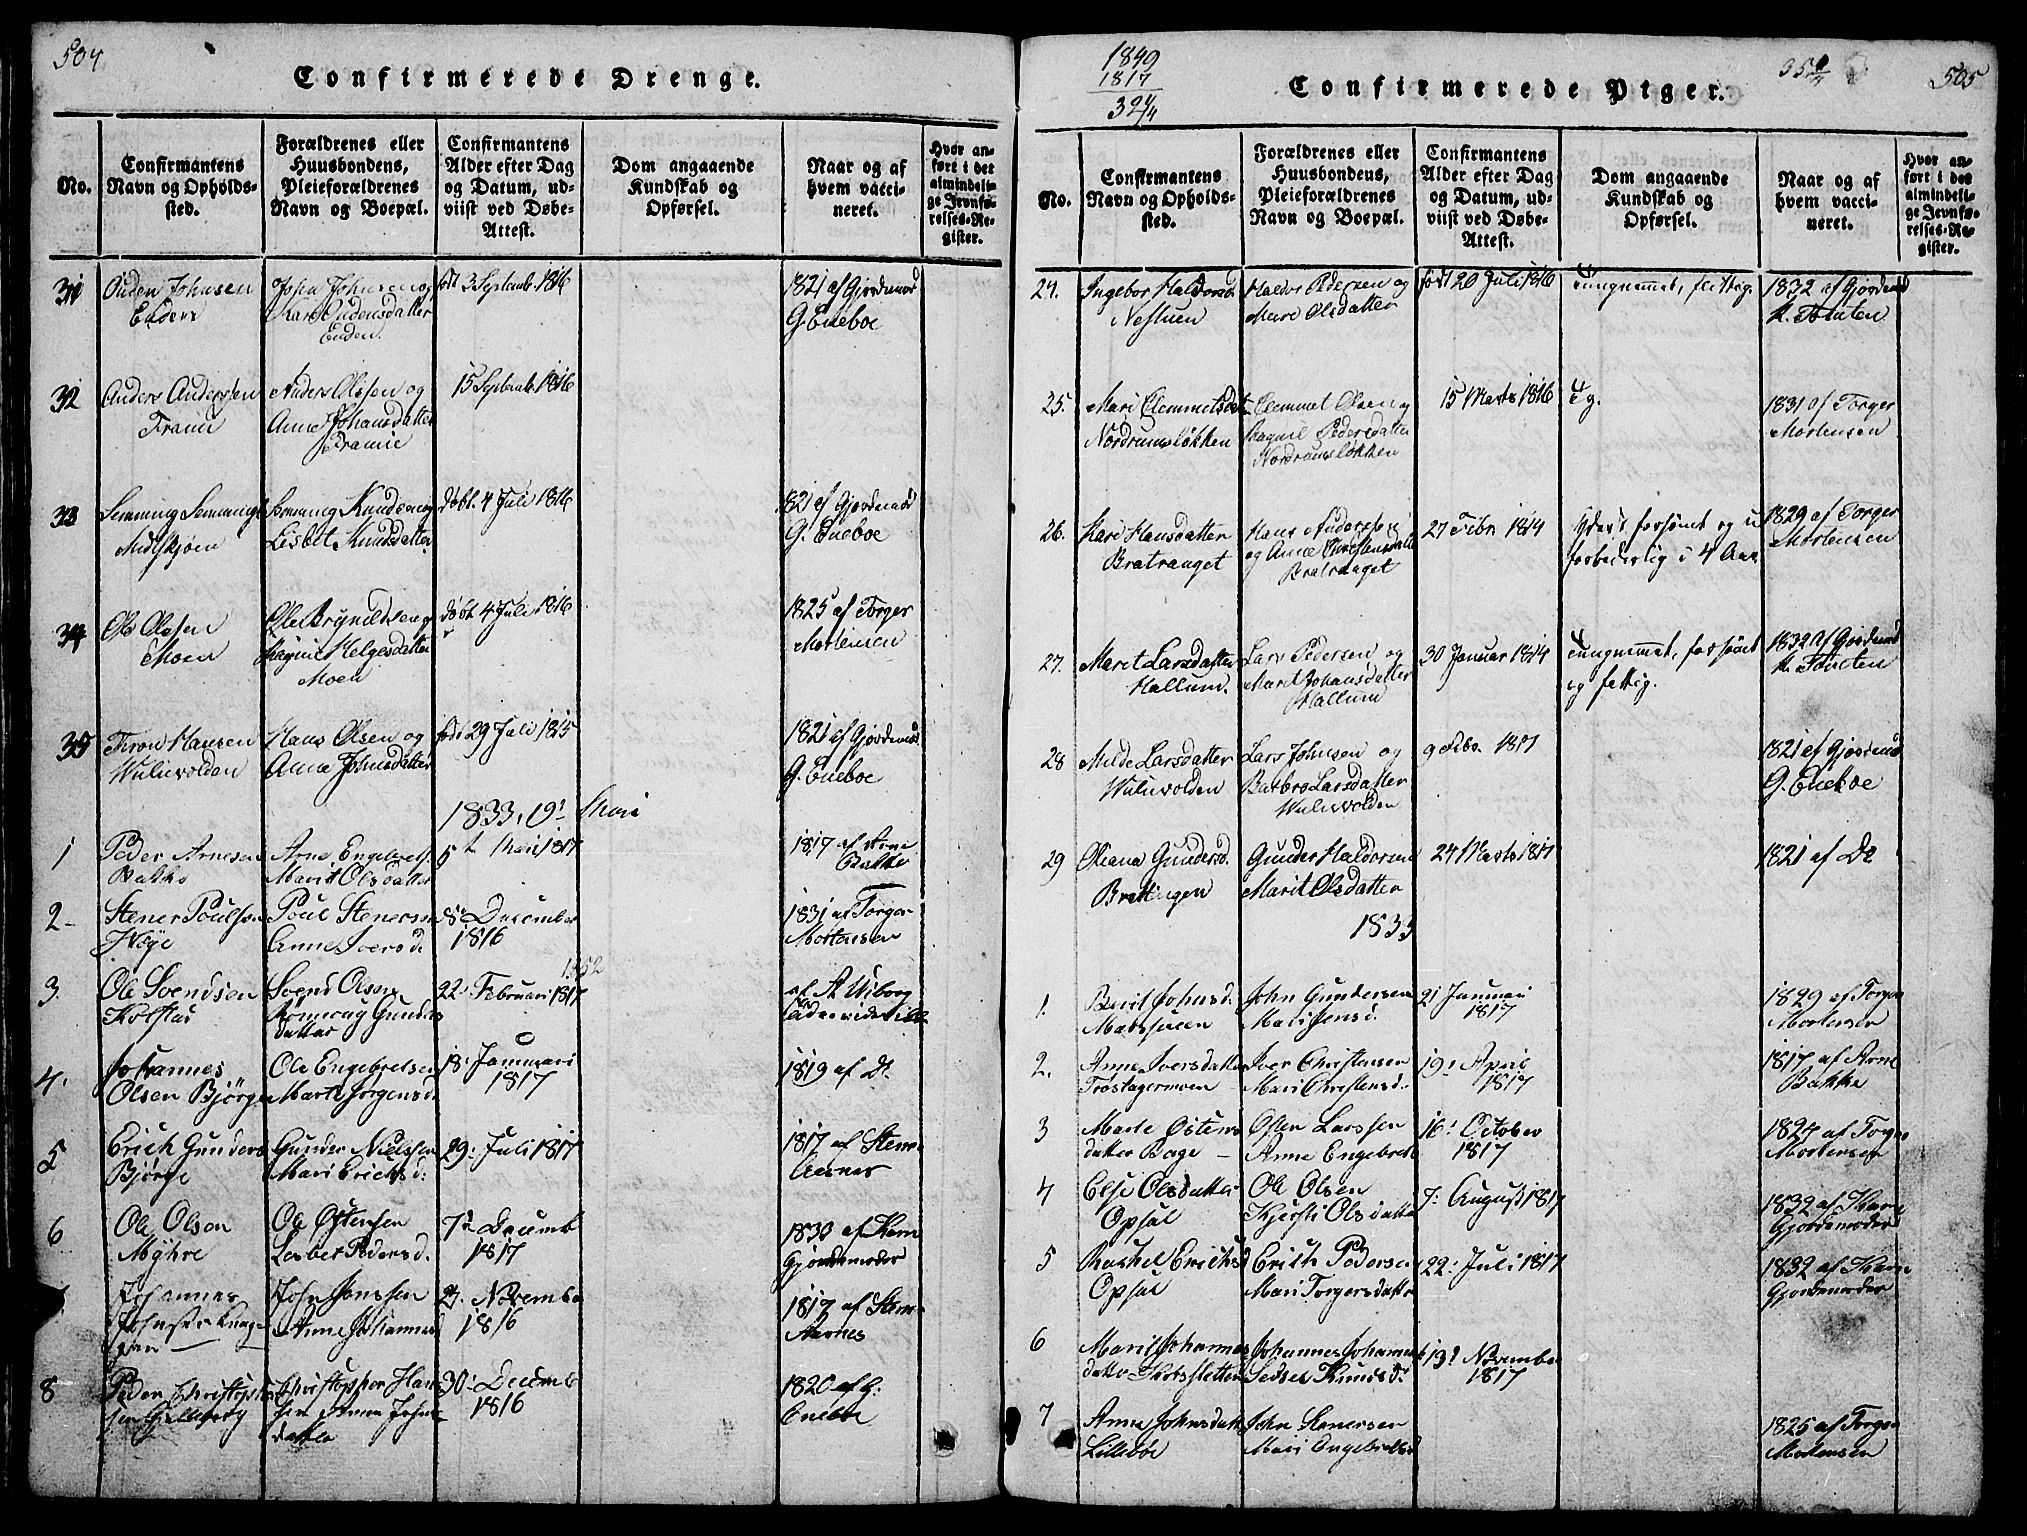 504
Confirmerede Drenge.
No.
Confirmantens
Navn og Opholds-
sted.
Forældrenes eller
Huusbondens,
Pleieforældrenes
Navn og Boepæl.
Confirmantens
Alder efter Dag
og Datum, ud-
viist ved Døbe-
Attest.
Dom angaaende
Kundskab og
Opførsel.
Naar og af
hvem vacci-
neret.
Hvor an-
ført i det
almindeli-
ge Jevnfø-
relses-Re-
gister.
31
Ouden Johnsen
John Johnsen og
Kari Oudensdatter
Enden
født 3 Septemb. 1816
1821 af Gjordemod
G. Eneboe
32
Anders Andersen
Anders Olsen og
Anne Johansdatter
15 Septemb. 1816
33
Semming Semmings
Semming Knudsen og
Lisbet Knudsdatter
døbt. 4 Juli 1816
1821 af Gjordemod
G. Eneboe
34
Ole Olsen
Moen
Ole Brynildsen og
Ragnil Helgesdatter
Moen
døbt 4 Juli 1816
1825 af Torger
Mortensen
35
Thron Hansen
Wuluvolden
Hans Olsen og
Anne Johnsdatter
født 29 Juli 1815
1821 af Gjordemod
G. Eneboe
1833, 19
1
Peder Arnesen
Bakke
Arne Engebrets.
Marit Olsdatter
5 Mari 1817
1817 af Arne
Bakke
2
Stener Poulsen
Høye
Poul Stenersen
Anne Iversd
8 December
1816
1831 af Torger
Mortensen
3
Ole Svendsen
Svend Olsen
Rønnoug Gunders
datter
22 Februari 1817
1852
af A Wiborg
4
Johannes
Olsen Bjørge
Ole Engebretsen
Marte Jørgensd
18 Januari
1817
1819 af Do
5
Erich Gunders
Bjørge
Gunder Nielssen
Mari Erichsd:
29: Juli 1817
1817 af Steen
Aarnes
6
Ole Olsen
Myhre
Ole Østensen
Lesbet Pedersd.
7 Decemb
1817
1830 af Kem
Gjordemoder
Johannes
John Jonssen
Anne Johannes
27. Novembe
1816
1817 af Steen
Aarnes
8
Peder Christophe
sen Gulleberg
Christopher Han
sen Anne John
datter
30 Decemb
1816
1820 af G:
Eneboe
1849
1817
505
Confirmerede Piger.
No.
Confirmantens
Navn og Opholds-
sted.
Forældrenes eller
Huusbondens,
Pleieforældrenes
Navn og Boepæl.
Confirmantens
Alder efter Dag
og Datum, ud-
viist ved Døbe-
Attest.
Dom angaaende
Kundskab og
Opførsel.
Naar og af
hvem vacci-
neret.
Hvor an-
ført i det
almindeli-
ge Jevnfø-
relses-Re-
gister.
24.
Ingebor Haldorsd
Nestuen
Haldor Pedersen og
Mari Olsdatter
født 20 Juli 1816
Tungnemmet, flittig.
1832 af Gjordemod
K. Tomten
25.
Mari Clemmetsdat
Nordrumsløkken
Clemmet Olsen og
Ragnil Pedersdatter
Nordrumsløkken
15 Marts 1816
1831 af Torger
Mortensen
26.
Kari Hansdatter
Bratvaaget
Hans Anderssen
og Anne Christensdatt
Bratvaaget
27 Febr 1814
forsømt og u
forbederlig i 4 Aar
1829 af Torger
Mortensen
27.
Marit Larsdatter
Hallum.
Lars Pedersen og
Marit Johansdatter
Hallum
30 Januar 1814
Tungnemmet, forsømt
og fattig.
1832 af Gjordemod
K. Tomten
28
Milde Larsdatter
Wuluvolden
Lars Johnsen og
Barbro Larsdatter
Wuluvolden
9 Febr. 1817
1821 af Gjordemod
G. Eneboe
29
Oleana Gundersd.
Brattingen
Gunder Haldorsen
Marit Olsdatter
24 Marts 1817
1821 af Do
1833
1.
Berit Johnsd.
John Gundersen
Mari Jensd.
21 Januari
1817
1829 af Torger
Mortensen
2.
Anne Iversdatter
Trøstagermoen
Iver Christensen
Mari Christensd.
19: April
1817
1817 af Arne
Bakke
3
Marte Østens
datter Bage
Østen Larssen
Anne Engebrets
16: October
1817
1824 af Torger
Mortensen
4
Else Olsdatter
Opsal
Ole Olsen
Kjersti Olsdatter
7: August 1817
1832 af Karn
Gjordemoder
5
Rachel Erichsd
Opsal
Erich Pedersen
Mari Torgersdatter
22: Juli 1817
1832 af Karn
Gjordemoder
6
Marit Johannes
datter Korssletten
Johannes Johannes
Sedsel Knudsd:
13: November
1817
7
Anne Johnsdatter
Lillebøe
John Stenersen
Mari Engebretsd
1825 af Torger
Mortensen